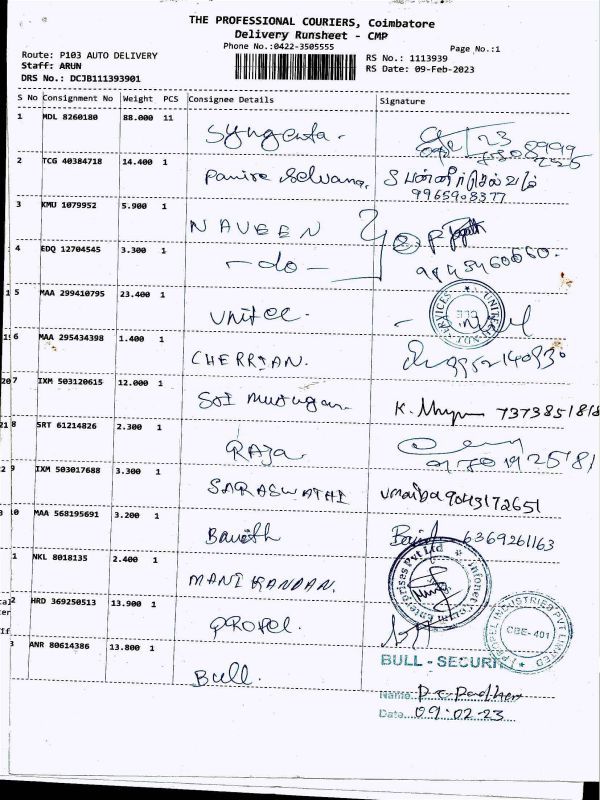 THE PROFESSIONAL COURIERS, Coimbatore
Delivery Runsheet - CMP
Phone No.:0422-3505555
Page No.:1
Route: P103 AUTO DELIVERY
Staff: ARUN
DRS No.: DCJB111393901
RS No.: 1113939
RS Date: 09-Feb-2023
S No Consignment No Weight PCS Consignee Details Signature
1 MDL 8260180 88.000 11 Syngenta.
2 TCG 40384718 14.400 1 Panire Selvam. 9965908377
3 KMU 1079952 5.900 1 NAVEEN
4 EDQ 12704545 3.300 1 -do-
5 MAA 299410795 23.400 1 Unitec.
6 MAA 295434398 1.400 1 CHERRIAN.
7 IXM 503120615 12.000 1 Sri Murugan.
8 SRT 61214826 2.300 1 RAJA.
9 IXM 503017688 3.300 1 SARASWATHI umaiba 9043172651
0 MAA 568195691 3.200 1 6369261163
1 NKL 8018135 2.400 1 MANIKANDAN.
2 HRD 369250513 13.900 1 Propel.
PROPEL INDUSTRIES PVT LIMITED
CBE-401
3 ANR 80614386 13.800 1 Bull.
BULL - SECURI
Name
Date 09.02.23